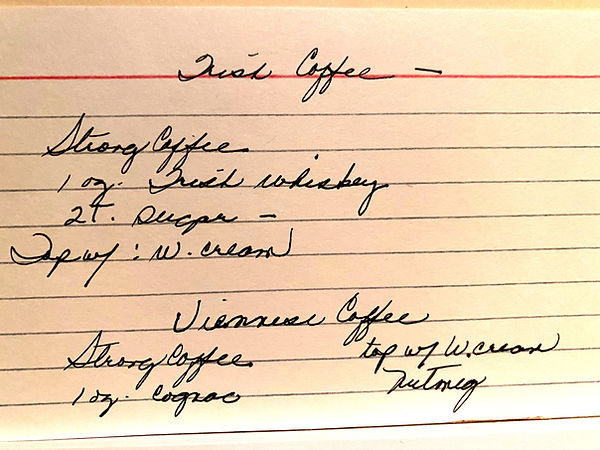 Irish Coffee —
Strong Coffee
1 oz. Irish whiskey
2T. sugar —
Top w/ : W. cream
Viennese Coffee
Strong Coffee
1 oz. Cognac
top w/ W. cream
Nutmeg